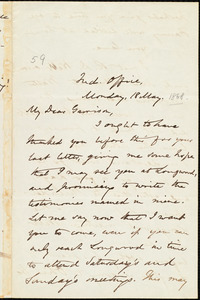 59
Ind. Office,
Monday, 18 May. 1868
My Dear Garrison,
I ought to have
thanked you before this for your
last letter, giving me some hope
that I may see you at Longwood,
and promising to write the
testimonies named in mine.
Let me say now that I want
you to come, even if you can
only reach Longwood in time
to attend Saturday's and
Sunday's meetings. This may